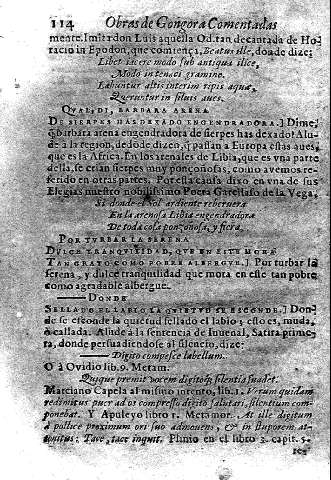 114 Obras de Gongora Comentadas
mente. Imitò don Luis aquella Od. tan decantada de Ho-
racio in Epodon, que comiença, Beatus ille, donde dize:
Libet iacere modo sub antiqua ilice,
Modo in tenaci gramine.
Labuntur altis interim ripis aquæ,
Queruntur in siluis aues.
QVAL, DI, BARBARA ARENA
DE SIERPES HAS DEXADO ENGENDRADORA.] Dime,
q̃ barbara arena engendradora de sierpes has dexado? Alu-
de à la region, de dõde dizen, q̃ passan a Europa estas aues,
que es la Africa. En los arenales de Libia, que es vna parte
della, se crian sierpes muy ponçoñosas, como auemos re-
ferido en otras partes. Por esta causa dixo en vna de sus
Elegias nuestro nobilissimo Poeta Garcilasso de la Vega.
Si donde el Sol ardiente reberuera
En la arenosa Libia engendradora
De toda cosa ponçoñosa, y fiera.
POR TURBAR LA SERENA
DVLCE TRANQVILIDAD, QVE EN ESTE MORA
TAN GRATO COMO POBRE ALBERGVE.] Por turbar la
serena, y dulce tranquilidad que mora en este tan pobre
como agradable albergue.
DONDE
SELLADO EL LABIO LA QVIETVD SE ESCONDE.] Don-
de se esconde la quietud sellado el labio; esto es, muda,
ò callada. Alude à la sentencia de Iuuenal, Satira prime-
ra, donde persuadiendose al silencio, dize:
Digito compesce labellum.
O à Ouidio lib. 9. Metam.
Quique premit vocem digitoq; silentia suadet.
Marciano Capela al mismo intento, lib. 1. Verum quidam
redimitus puer ad os compresso digito salutari, silentium com-
monebat. Y Apuleyo libro 1. Metamor. At ille digitum
à pollice proximum ori suo admouens, & in stuporem at-
tonitus: Tace, tace inquit. Plinio en el libro 3. capit. 5.